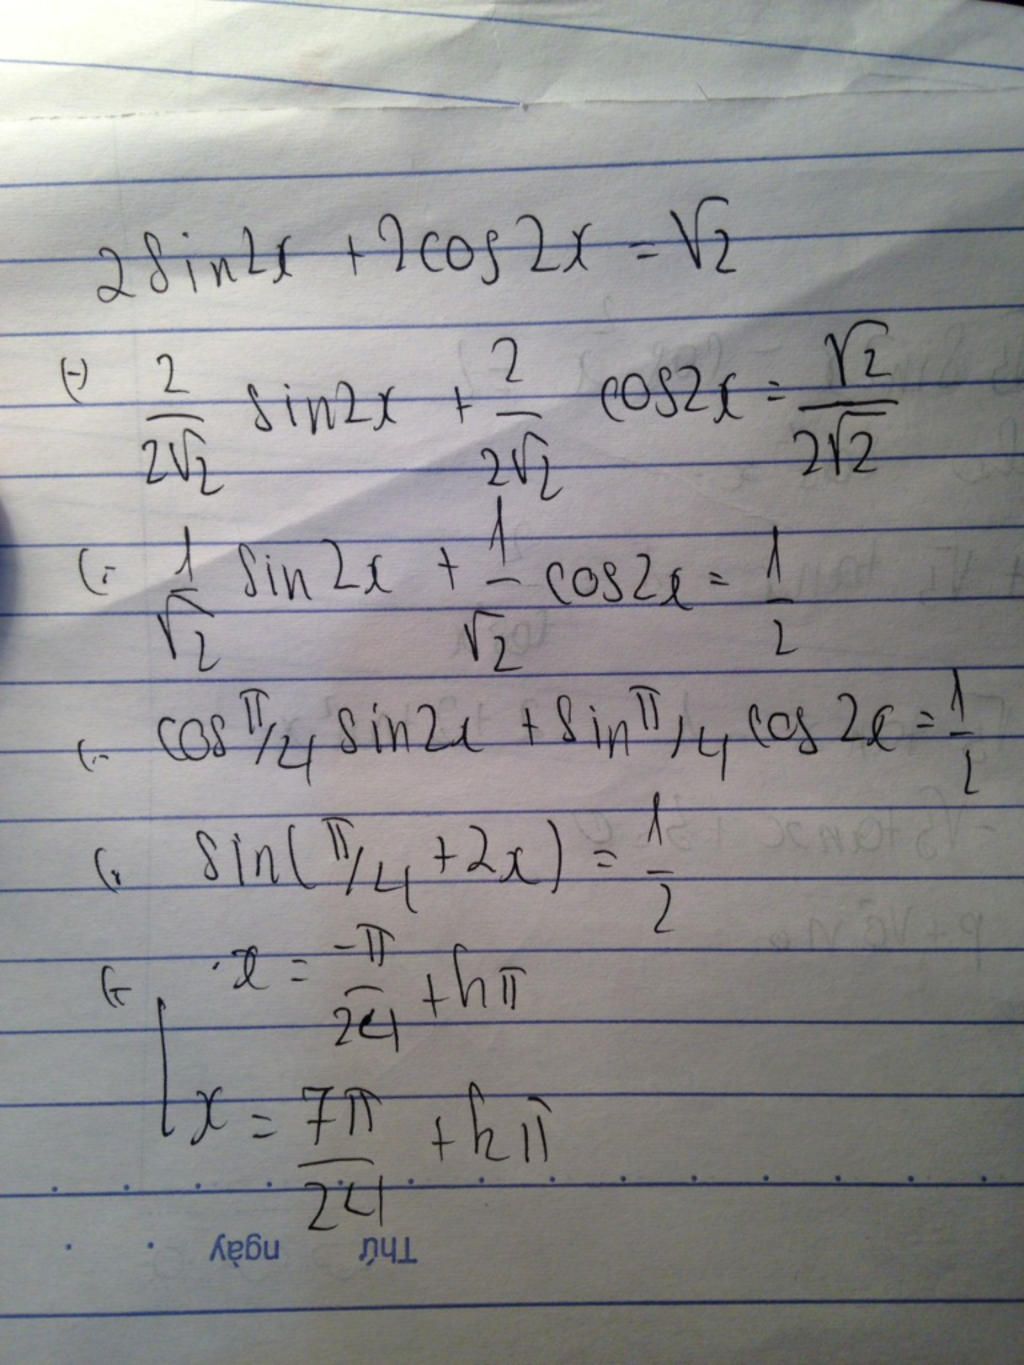 2sin2x + 2cos2x = √2
(-) 2/2√2 sin2x + 2/2√2 cos2x = √2/2√2
(- 1/√2 sin2x + 1/√2 cos2x = 1/2
(- cos π/4 sin2x + sin π/4 cos2x = 1/2
(- sin(π/4 + 2x) = 1/2
(- x = -π/24 + kπ
x = 7π/24 + kπ
Thứ ngày